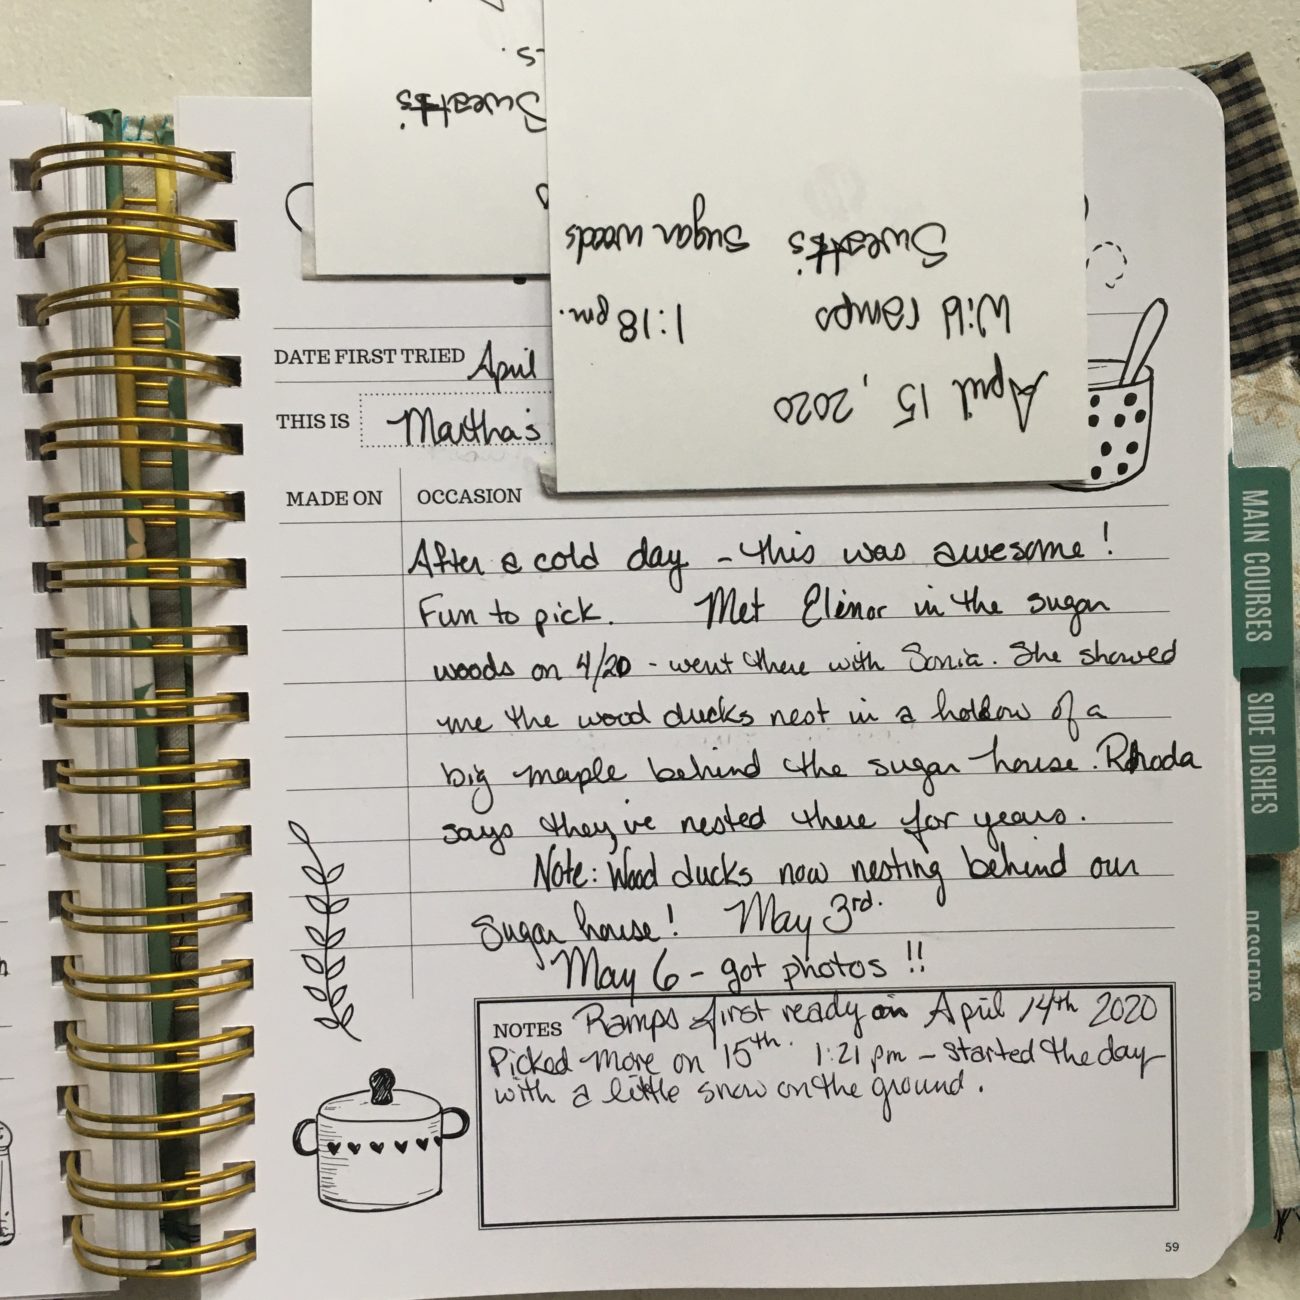 Sweatt's
Sugar woods
Sweatt's
1:18 pm.
Wild ramps
April 15, 2020
DATE FIRST TRIED April
THIS IS Martha's
MADE ON OCCASION
After a cold day - this was awesome!
Fun to pick. Met Elinor in the sugar
woods on 4/20 - went there with Sonia. She showed
me the wood ducks nest in a hollow of a
big maple behind the sugar house. Rhoda
says they've nested there for years.
Note: Wood ducks now nesting behind our
Sugar house! May 3rd.
May 6 - got photos !!
NOTES Ramps first ready on April 14th 2020
Picked more on 15th. 1:21 pm - started the day
with a little snow on the ground.
59
MAIN COURSES
SIDE DISHES
DESSERTS